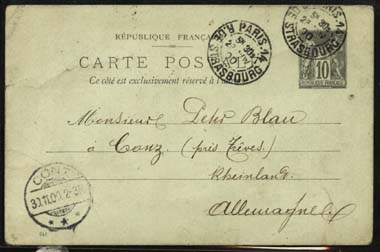 RÉPUBLIQUE FRANÇAISE
CARTE POSTALE
Ce côté est exclusivement réservé à l'adresse
PARIS-14 R. DE STRASBOURG
PARIS-14 R. DE STRASBOURG
10
Monsieur Peter Blau
à Conz (près Trèves)
Rheinland.
Allemagne
CONZ
30.11.00.2-3N